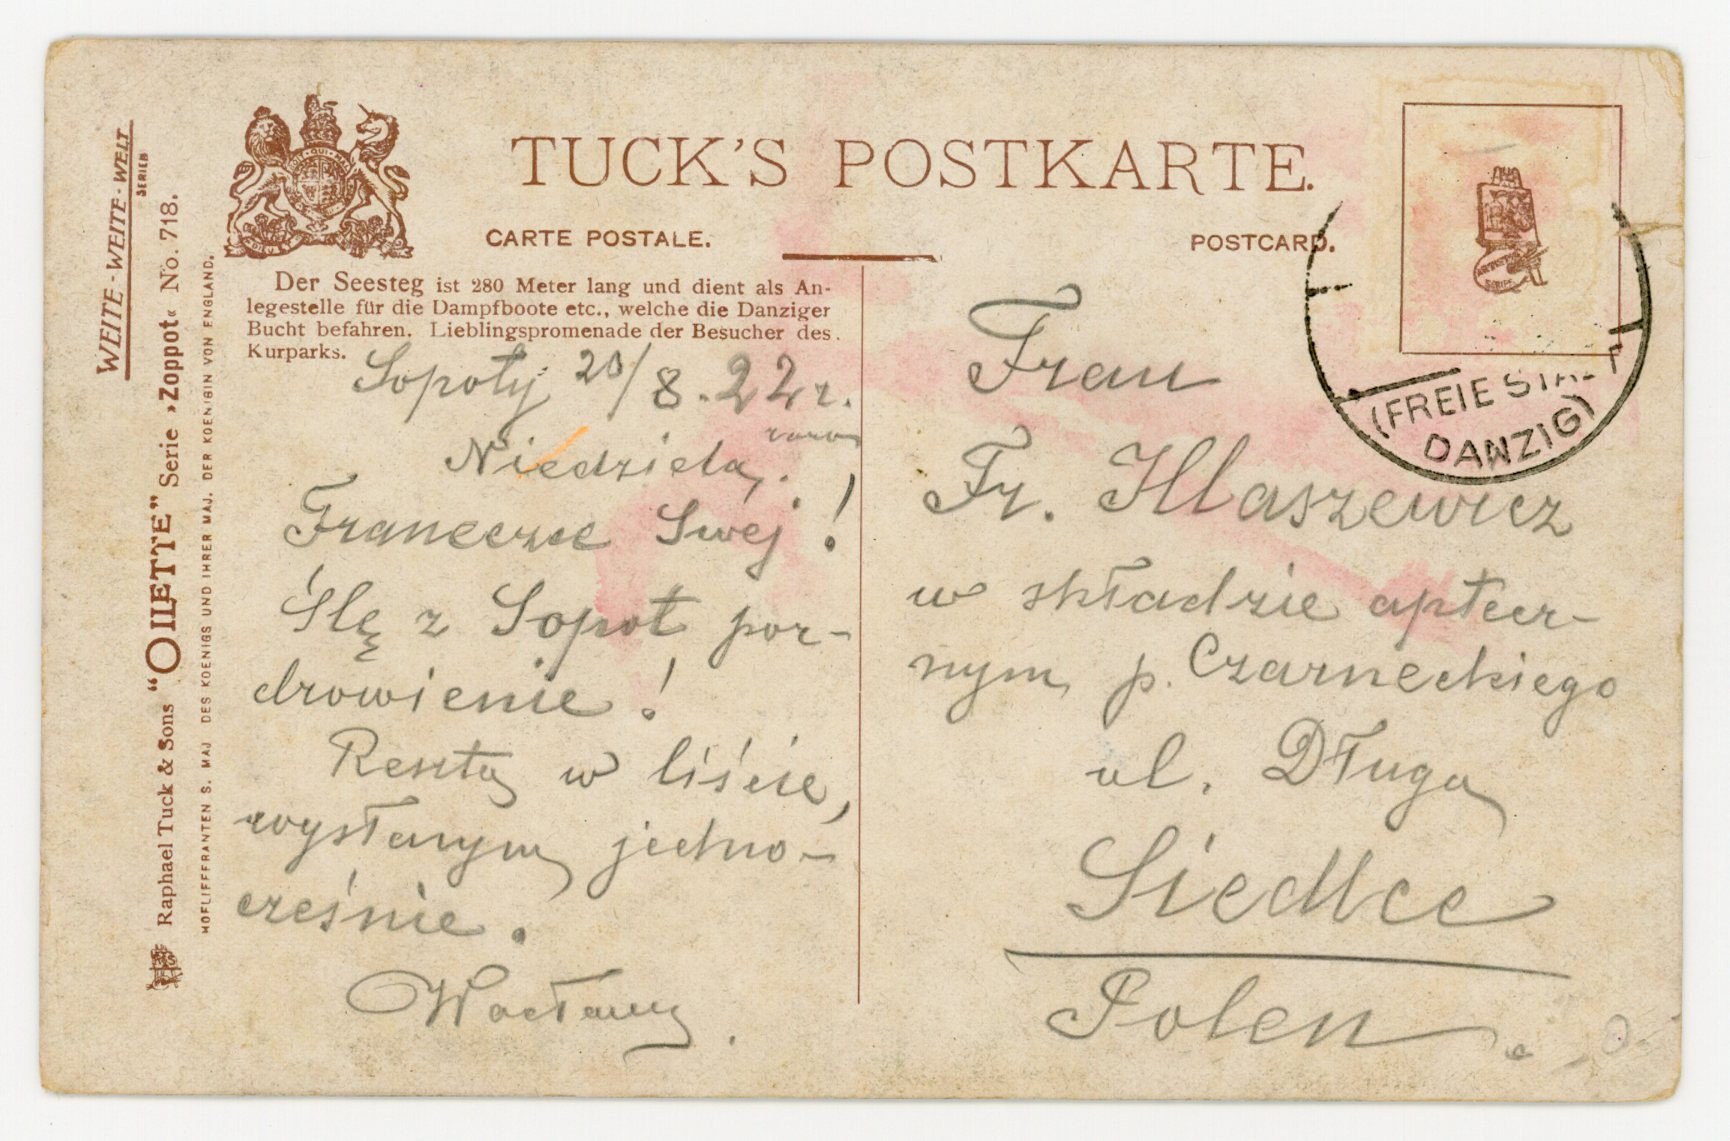 WEITE-WEITE-WELT
SERIEN
Raphael Tuck & Sons "OILETTE" Serie »Zoppot« No. 718.
HOFLIEFERANTEN S. MAJ. DES KOENIGS UND IHRER MAJ. DER KOENIGIN VON ENGLAND.
TUCK'S POSTKARTE.
CARTE POSTALE.
POSTCARD.
Der Seesteg ist 280 Meter lang und dient als An-
legestelle für die Dampfboote etc., welche die Danziger
Bucht befahren. Lieblingspromenade der Besucher des
Kurparks.
Sopoty 20/8.22 r.
Niedziela, rano
Franeczce Swej!
Ślę z Sopot poz-
drowienie!
Resztę w liście,
wysłanym jedno-
cześnie.
Wacław
(FREIE STAAT
DANZIG)
Frau
Fr. Hlaszewicz
w składzie aptecz-
nym p. Czarneckiego
ul. Długa
Siedlce
Polen.